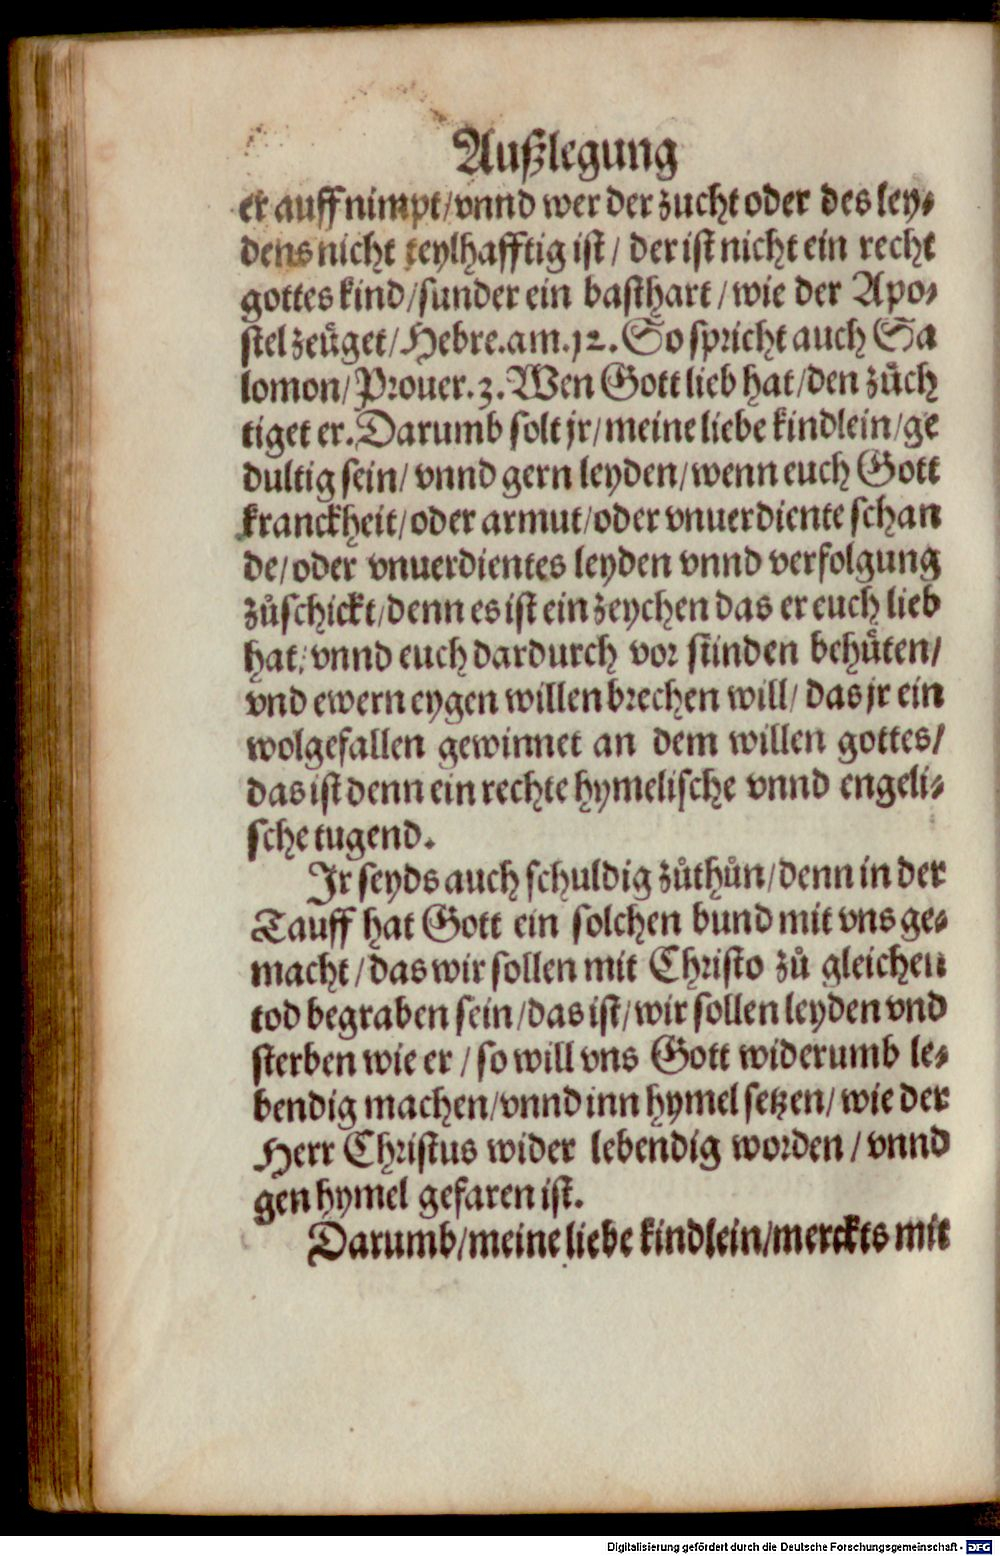 Außlegung
er auffnimpt/ vnnd wer der zucht oder des ley⸗
dens nicht teylhafftig ist/ der ist nicht ein recht
gottes kind/ sunder ein basthart/ wie der Apo⸗
stel zeüget/ Hebre. am. 12. So spricht auch Sa
lomon/ Prouer. 3. Wen Gott lieb hat/ den züch
tiget er. Darumb solt jr/ meine liebe kindlein/ ge
dultig sein/ vnnd gern leyden/ wenn euch Gott
kranckheit/ oder armut/ oder vnuerdiente schan
de/ oder vnuerdientes leyden vnnd verfolgung
zůschickt/ denn es ist ein zeychen das er euch lieb
hat/ vnnd euch dardurch vor sünden behüten/
vnd ewern eygen willen brechen will/ das jr ein
wolgefallen gewinnet an dem willen gottes/
das ist denn ein rechte hymelische vnnd engeli⸗
sche tugend.
Ir seyds auch schuldig zůthůn/ denn in der
Tauff hat Gott ein solchen bund mit vns ge⸗
macht/ das wir sollen mit Christo zů gleichen
tod begraben sein/ das ist/ wir sollen leyden vnd
sterben wie er/ so will vns Gott widerumb le⸗
bendig machen/ vnnd inn hymel setzen/ wie der
Herr Christus wider lebendig worden/ vnnd
gen hymel gefaren ist.
Darumb/ meine liebe kindlein/ merckts mit
Digitalisierung gefördert durch die Deutsche Forschungsgemeinschaft - DFG